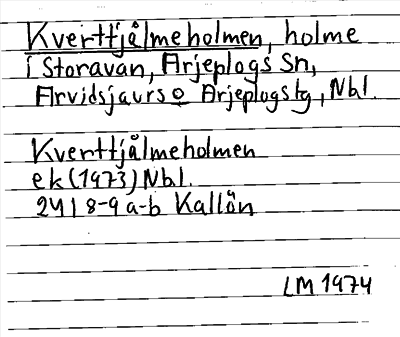 Kverttjålmeholmen, holme
i Storavan, Arjeplogs Sn,
Arvidsjaurs o Arjeplogs tg, Nbl.
Kverttjålmeholmen
ek (1973) Nbl.
24 I 8-9 a-b Kallön
LM 1974